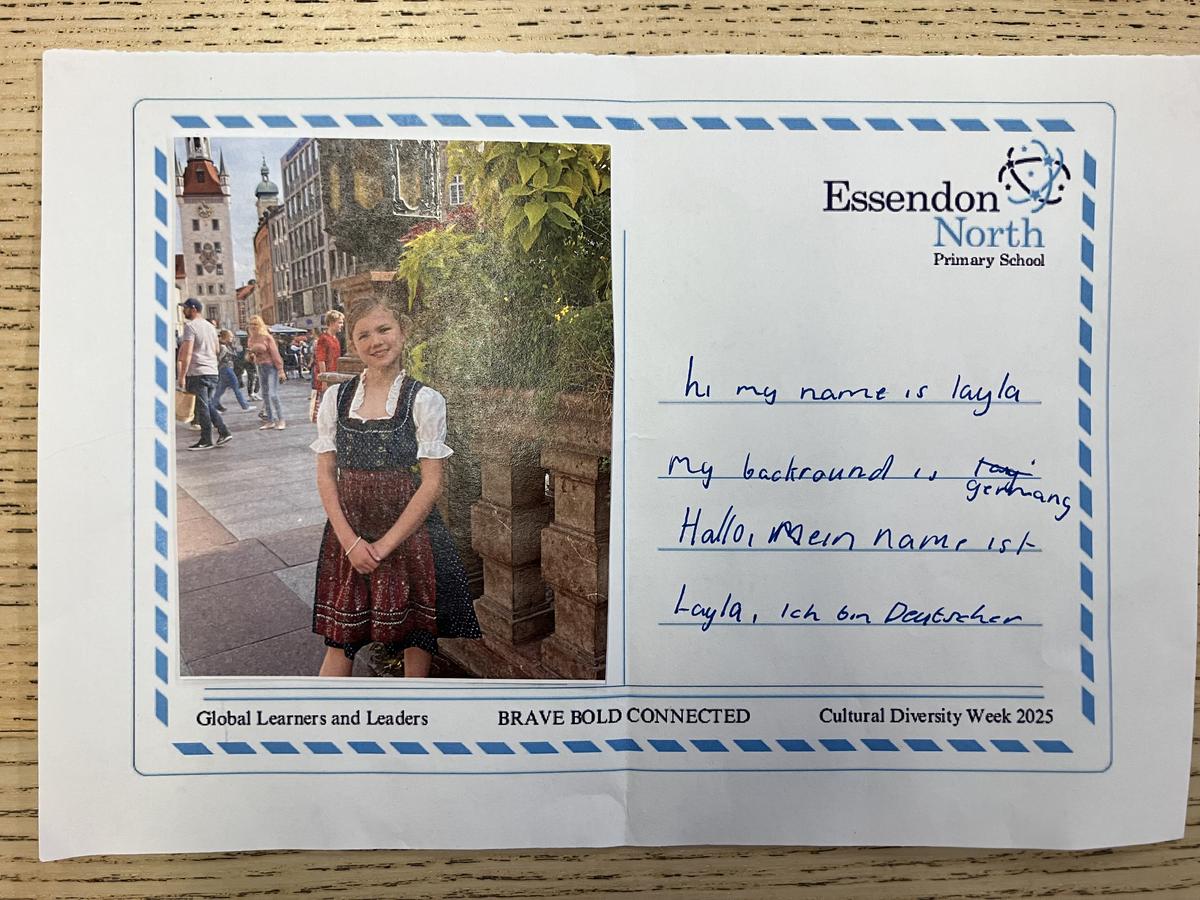 Essendon
North
Primary School
hi my name is layla
my backround is
germany
Hallo, Mein name ist
Layla, ich bin Deutscher
Global Learners and Leaders
BRAVE BOLD CONNECTED
Cultural Diversity Week 2025